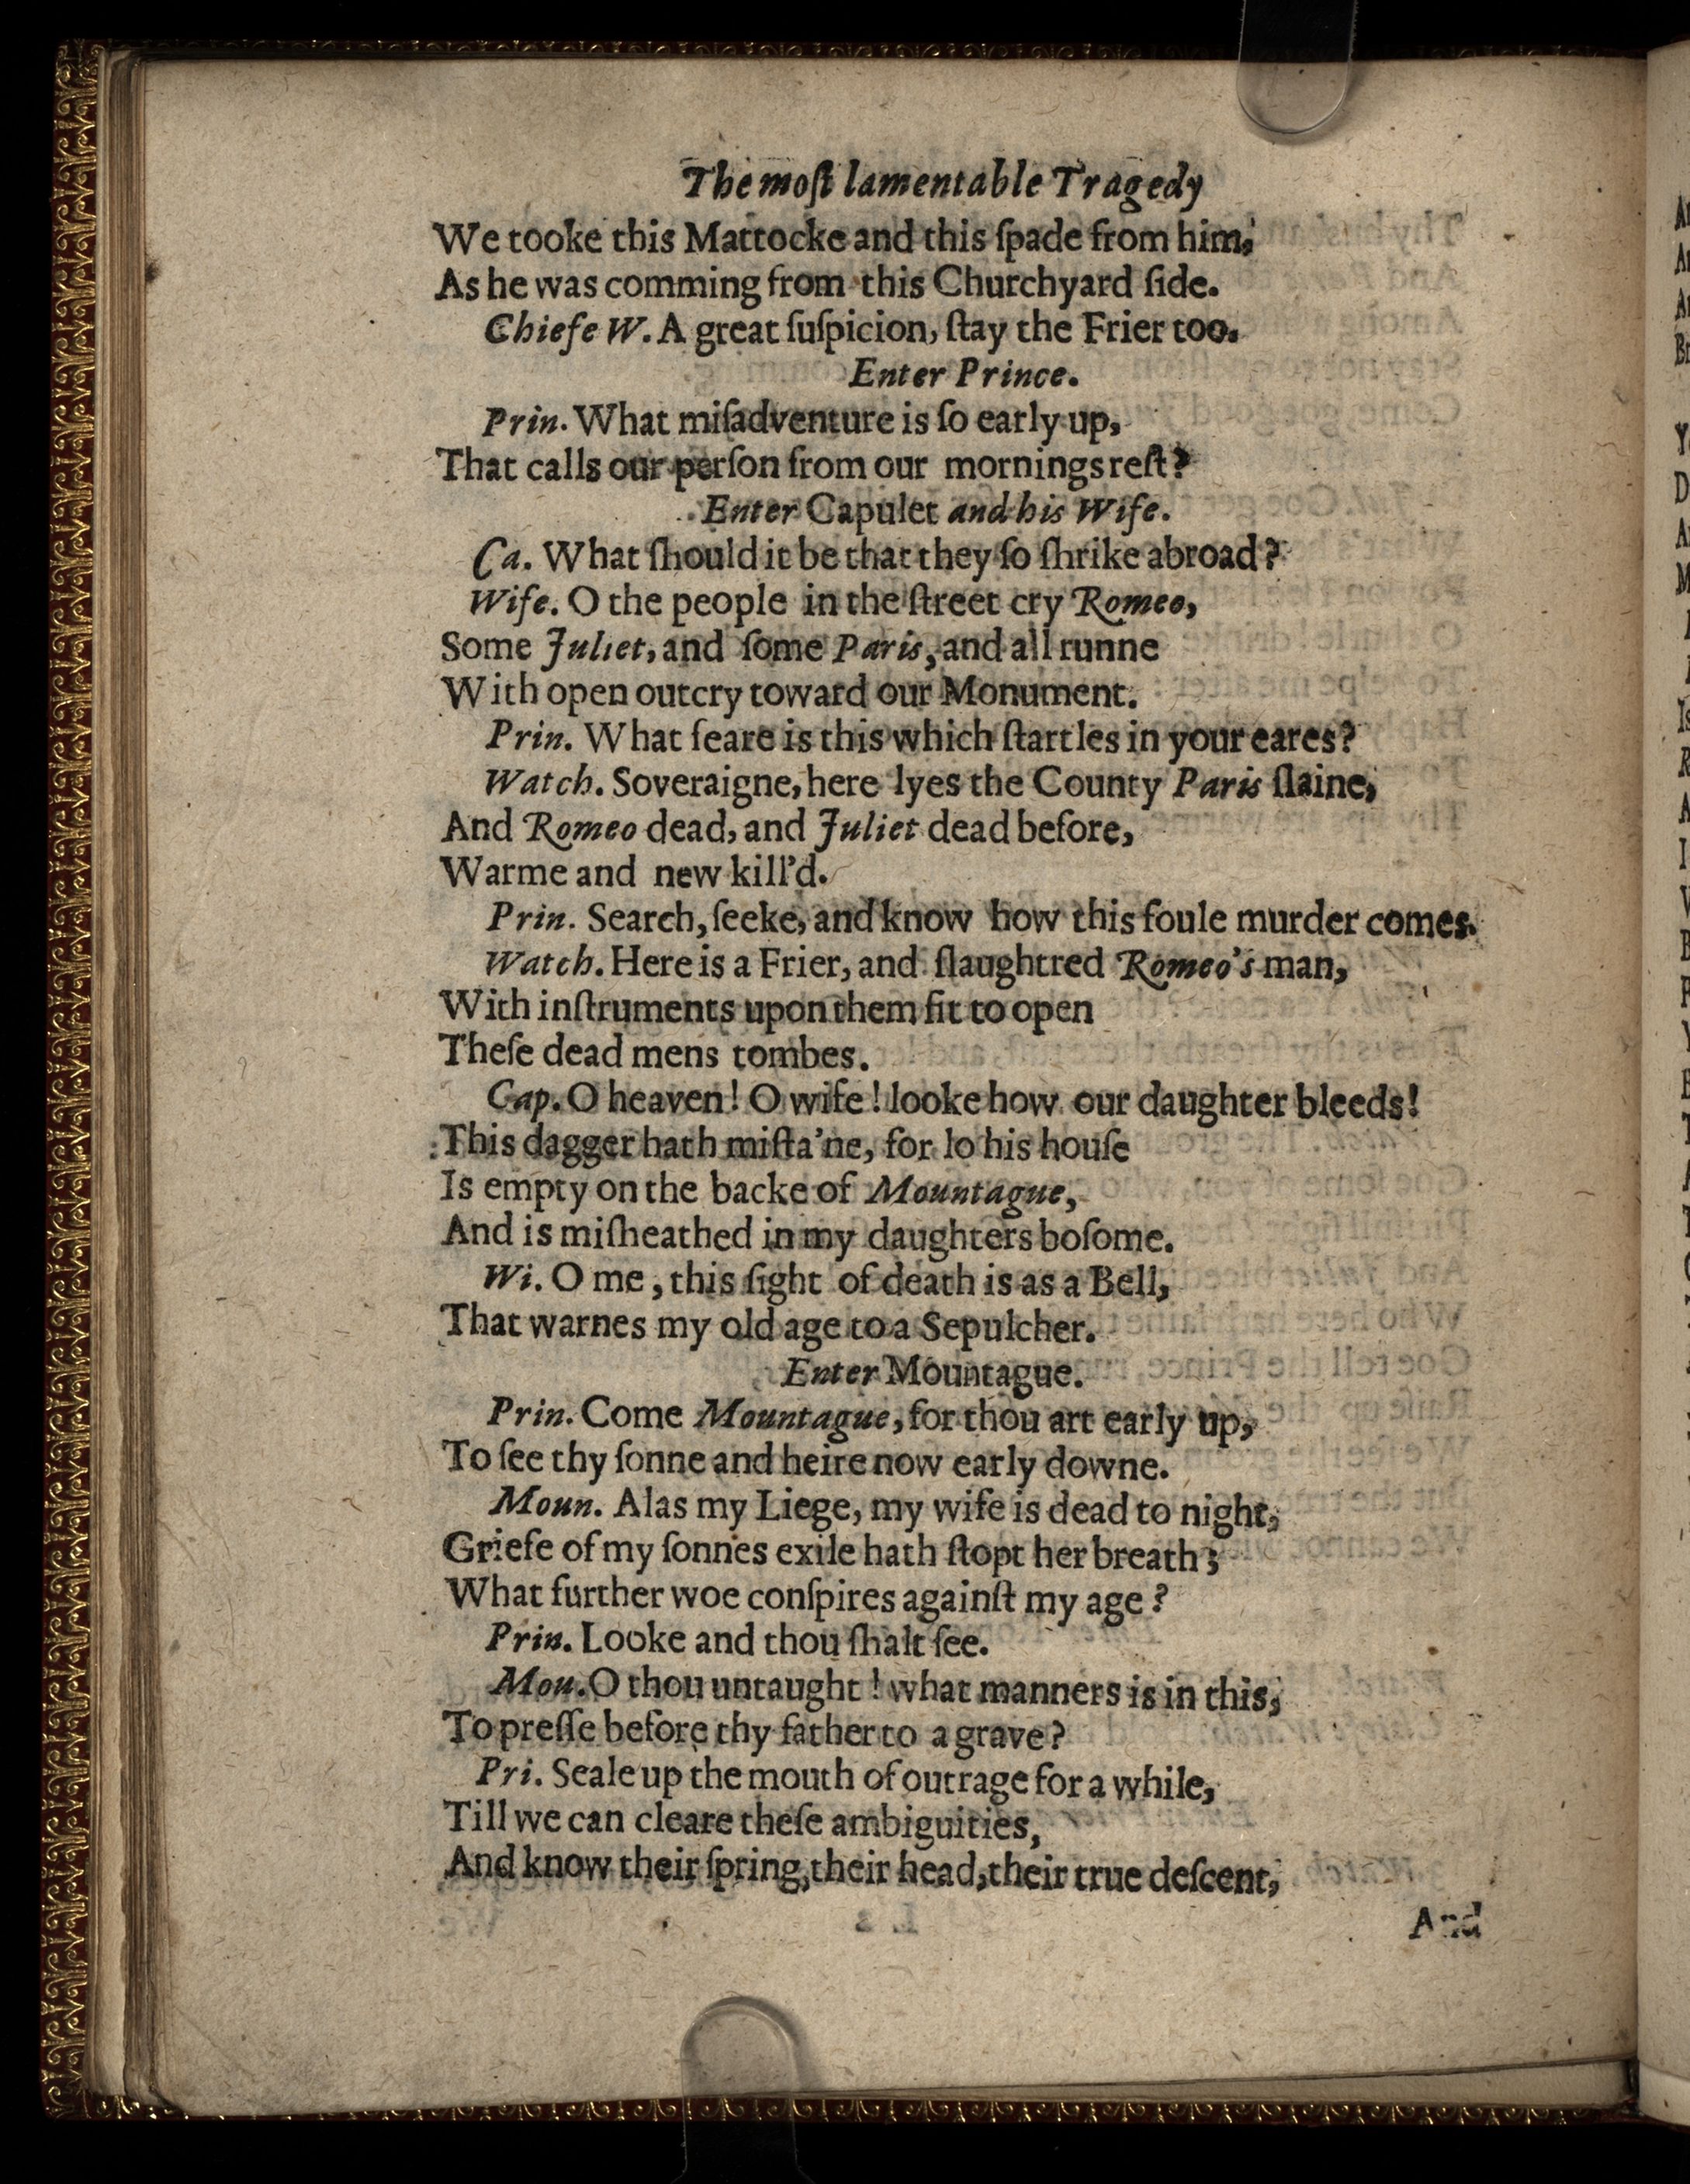 The moſt lamentable Tragedy
We tooke this Mattocke and this ſpade from him,
As he was comming from this Churchyard ſide.
Chiefe W. A great ſuſpicion, ſtay the Frier too.
Enter Prince.
Prin. What miſadventure is ſo early up,
That calls our perſon from our mornings reſt?
Enter Capulet and his Wife.
Ca. What ſhould it be that they ſo ſhrike abroad?
Wife. O the people in the ſtreet cry Romeo,
Some Juliet, and ſome Paris, and all runne
With open outcry toward our Monument.
Prin. What feare is this which ſtartles in your eares?
Watch. Soveraigne, here lyes the County Paris ſlaine,
And Romeo dead, and Juliet dead before,
Warme and new kill'd.
Prin. Search, ſeeke, and know how this foule murder comes.
Watch. Here is a Frier, and ſlaughtred Romeo's man,
With inſtruments upon them fit to open
Theſe dead mens tombes.
Cap. O heaven! O wife! looke how our daughter bleeds!
This dagger hath miſta'ne, for lo his houſe
Is empty on the backe of Mountague,
And is miſheathed in my daughters boſome.
Wi. O me, this ſight of death is as a Bell,
That warnes my old age to a Sepulcher.
Enter Mountague.
Prin. Come Mountague, for thou art early up,
To ſee thy ſonne and heire now early downe.
Moun. Alas my Liege, my wife is dead to night,
Griefe of my ſonnes exile hath ſtopt her breath;
What further woe conſpires againſt my age?
Prin. Looke and thou ſhalt ſee.
Mou. O thou untaught! what manners is in this,
To preſſe before thy father to a grave?
Pri. Seale up the mouth of outrage for a while,
Till we can cleare theſe ambiguities,
And know their ſpring, their head, their true deſcent,
And